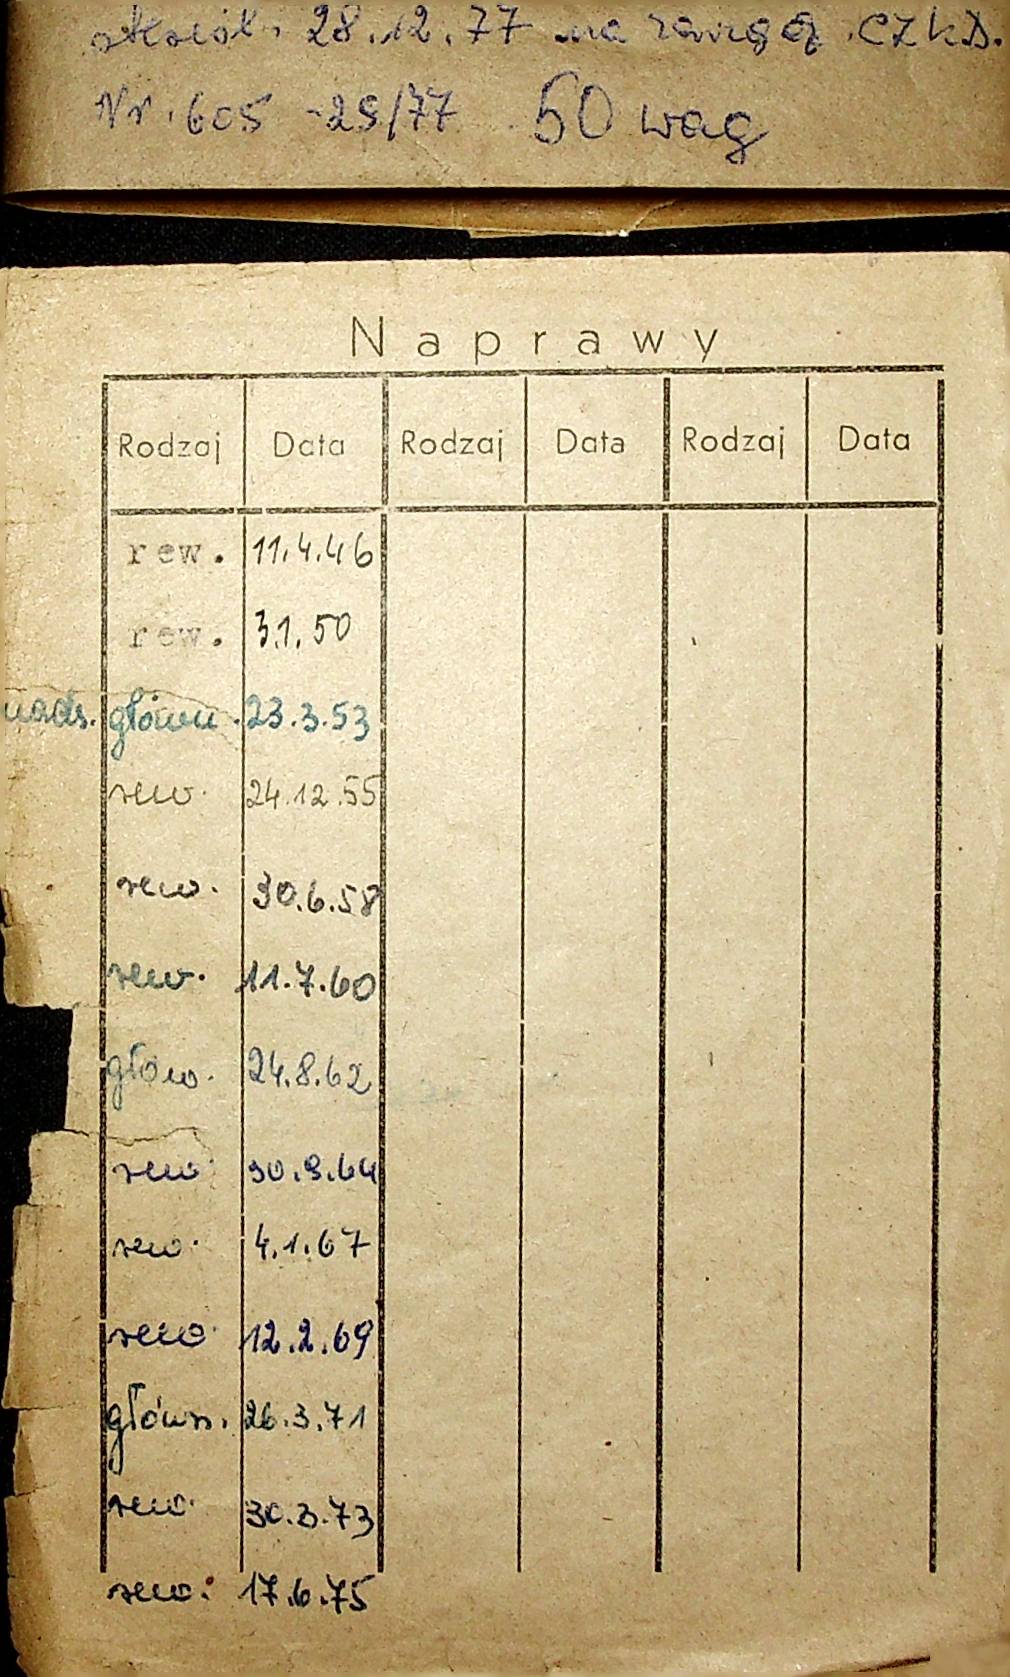 28.12.77 na CZKD.
Nr. 605 -29/77 50 wag
Naprawy
Rodzaj Data Rodzaj Data Rodzaj Data
rew. 11.4.46
rew. 3.1.50
nads. główn. 23.3.53
rew. 24.12.55
rew. 30.6.58
rew. 11.7.60
głów. 24.8.62
rew. 30.9.64
rew. 4.1.67
rew. 12.2.69
główn. 26.3.71
rew. 30.3.73
rew. 17.6.75